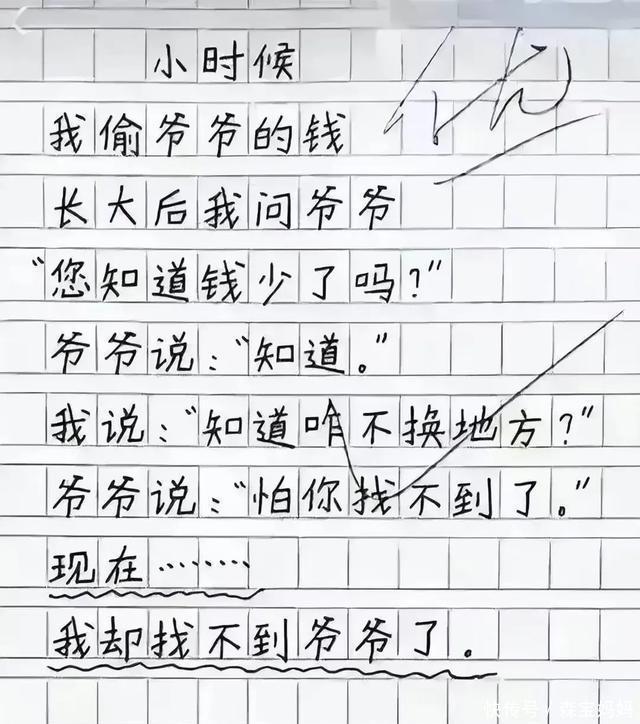 小时候
优
我偷爷爷的钱
长大后我问爷爷
“您知道钱少了吗？”
爷爷说：“知道。”
我说：“知道咱不换地方？”
爷爷说：“怕你找不到了。”
现在………
我却找不到爷爷了。
快传号／森宝妈妈